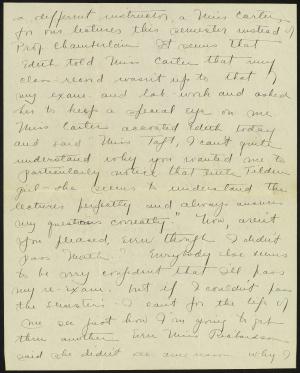 a different instructor, a Miss Carter,
for our lectures this semester instead of
Prof. Chamberlain. It seems that
Edith told Miss Carter that my
class-record wasn't up to that of
my exam. and lab work and asked
her to keep a special eye on me.
Miss Carter accosted Edith today
and said "Miss Taft, I can't quite
understand why you wanted me to
particularly notice that little Tilden
girl - she seems to understand the
lectures perfectly and always answers
my questions correctly." Now, aren't
you pleased, even though I didn't
pass Math.? Everybody else seems
to be very confident that I'll pass
my re-exam. but if I couldn't pass
the semester's I can't for the life of
me see just how I'm going to get
thru another. Even Miss Richardson
said she didn't see any reason why I